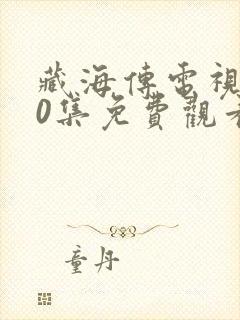 藏海傳電視
0集免費觀看
童丹